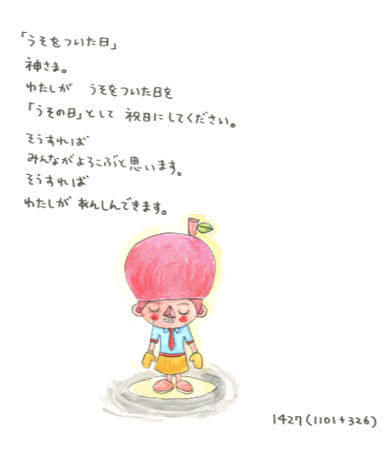 「うそをついた日」
神さま。
わたしが うそをついた日を
「うその日」として 祝日にしてください。
そうすれば
みんながよろこぶと思います。
そうすれば
わたしが あんしんできます。
1427(1101+326)